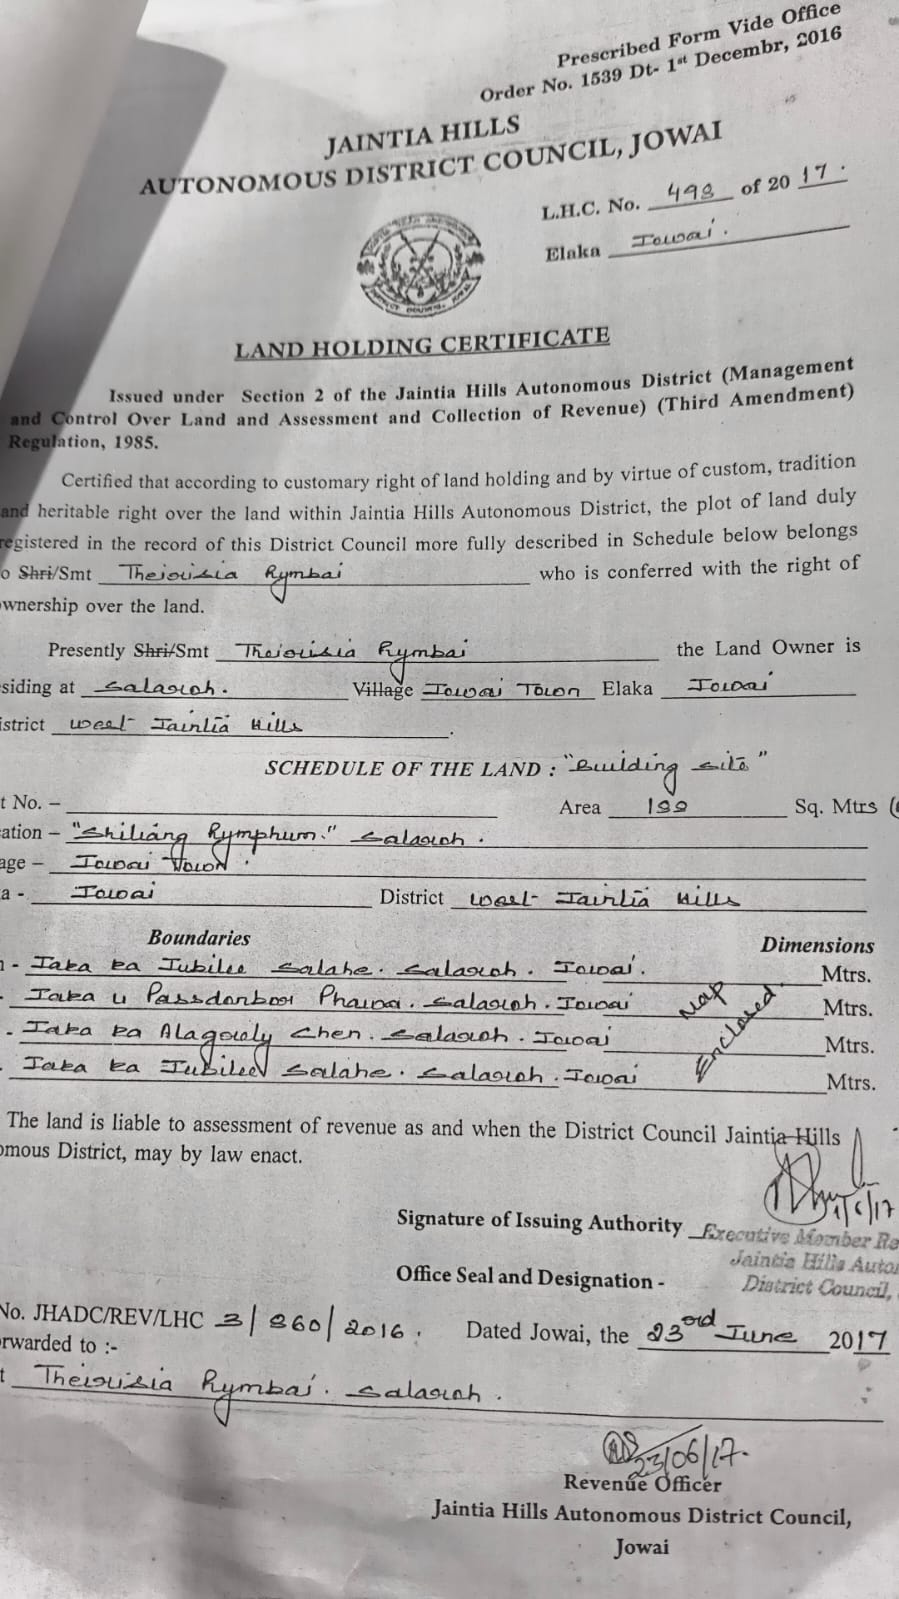 Prescribed Form Vide Office
Order No. 1539 Dt- 1st Decembr, 2016
JAINTIA HILLS
AUTONOMOUS DISTRICT COUNCIL, JOWAI
L.H.C. No. 498 of 2017.
Elaka Jowai.
LAND HOLDING CERTIFICATE
Issued under Section 2 of the Jaintia Hills Autonomous District (Management
and Control Over Land and Assessment and Collection of Revenue) (Third Amendment)
Regulation, 1985.
Certified that according to customary right of land holding and by virtue of custom, tradition
and heritable right over the land within Jaintia Hills Autonomous District, the plot of land duly
registered in the record of this District Council more fully described in Schedule below belongs
o Shri/Smt Theiorisia Rymbai who is conferred with the right of
wnership over the land.
Presently Shri/Smt Theiorisia Rymbai the Land Owner is
siding at Salaroh. Village Jowai Town Elaka Jowai
istrict West Jaintia Hills.
SCHEDULE OF THE LAND : "Building site"
t No. – Area 199 Sq. Mtrs (
ation – "Shiliang Rymphum." Salaroh.
age – Jowai Town.
a - Jowai District West Jaintia Hills
Boundaries Dimensions
- Jaka ka Jubilee Salahe. Salaroh. Jowai. Mtrs.
. Jaka u Passdonboor Phawa. Salaroh. Jowai Mtrs.
. Jaka ka Chen. Salaroh. Jowai Mtrs.
. Jaka ka Jubilee Salahe. Salaroh. Jowai Mtrs.
Map Enclosed.
The land is liable to assessment of revenue as and when the District Council Jaintia Hills
omous District, may by law enact.
Signature of Issuing Authority Executive Member Re
Jaintia Hills Auto
Office Seal and Designation - District Council,
No. JHADC/REV/LHC 3/860/2016. Dated Jowai, the 23rd June 2017
rwarded to :-
t Theiorisia Rymbai. Salaroh.
23/06/17.
Revenue Officer
Jaintia Hills Autonomous District Council,
Jowai